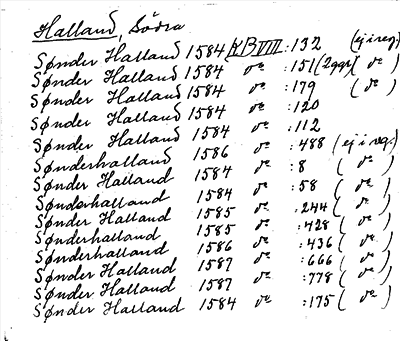 Halland, Södra
Sønder Halland 1584 KB VIII :132 (ej i reg.)
Sønder Halland 1584 dº :151 (2ggr) ( dº )
Sønder Halland 1584 dº :179 ( dº )
Sønder Halland 1584 dº :120
Sønder Halland 1584 dº :112
Sønderhalland 1586 dº :488 (ej i reg.)
Sønder Halland 1584 dº :8 ( dº )
Sønderhalland 1584 dº :58 ( dº )
Sønder Halland 1585 dº :244 ( dº )
Sønderhalland 1585 dº :428 ( dº )
Sønderhalland 1586 dº :436 ( dº )
Sønder Halland 1587 dº :666 ( dº )
Sønder Halland 1587 dº :778 ( dº )
Sønder Halland 1584 dº :175 ( dº )